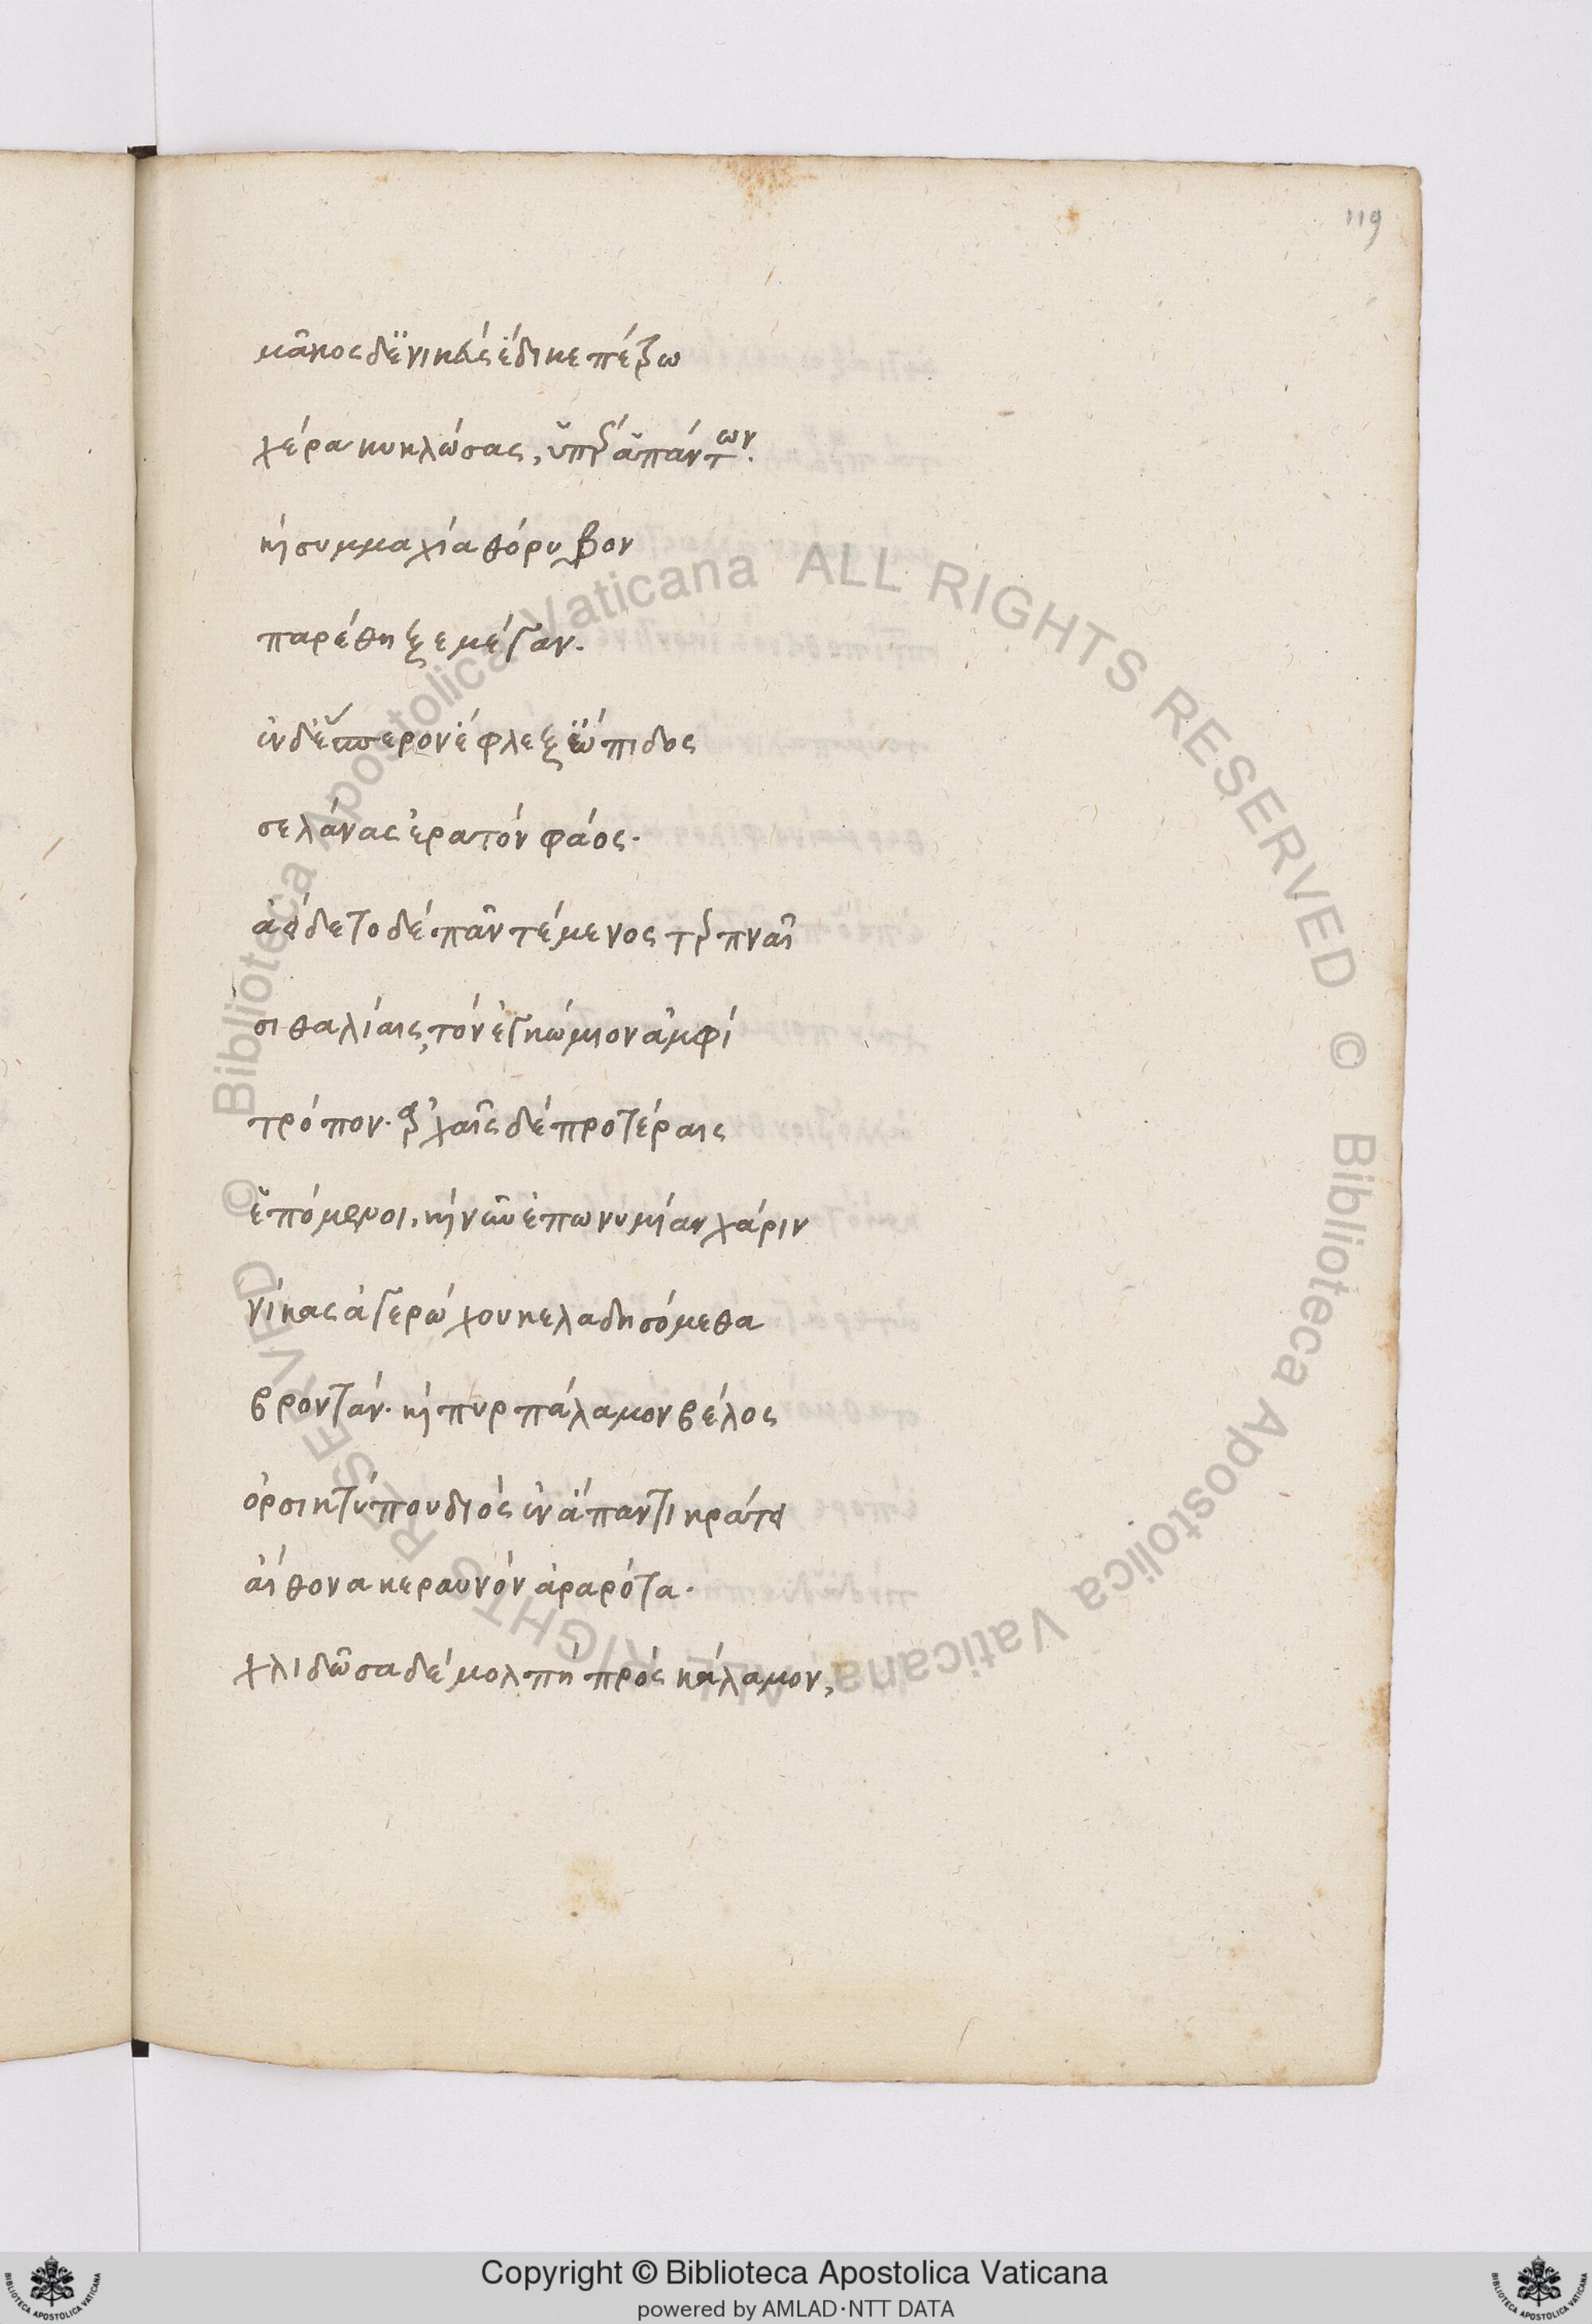 119
μᾶκος δὲ νικεὺς ἔδικε πέτρω
χέρα κυκλώσας, ὑπὲρ ἁπάντων.
καὶ συμμαχία θόρυβον
παρέθηξε μέγαν.
ἐν δ' ἕσπερον ἔφλεξ' εὐώπιδος
σελάνας ἐρατὸν φάος.
ἀείδετο δὲ πᾶν τέμενος τερπναῖ
σι θαλίαις, τὸν ἐγκώμιον ἀμφὶ
τρόπον. ἀρχαῖς δὲ προτέραις
ἑπόμενοι, καὶ νῦν ἐπωνυμίαν χάριν
νίκας ἀγερώχου κελαδησόμεθα
βροντάν. καὶ πυρπάλαμον βέλος
ὀρσικτύπου διὸς ἐν ἅπαντι κράτει
αἴθονα κεραυνὸν ἀραρότα.
χλιδῶσα δὲ μολπὴ πρὸς κάλαμον,
© Biblioteca Apostolica Vaticana ALL RIGHTS RESERVED © Biblioteca Apostolica Vaticana ALL RIGHTS RESERVED
Copyright © Biblioteca Apostolica Vaticana
powered by AMLAD·NTT DATA
BIBLIOTECA APOSTOLICA VATICANA
BIBLIOTECA APOSTOLICA VATICANA